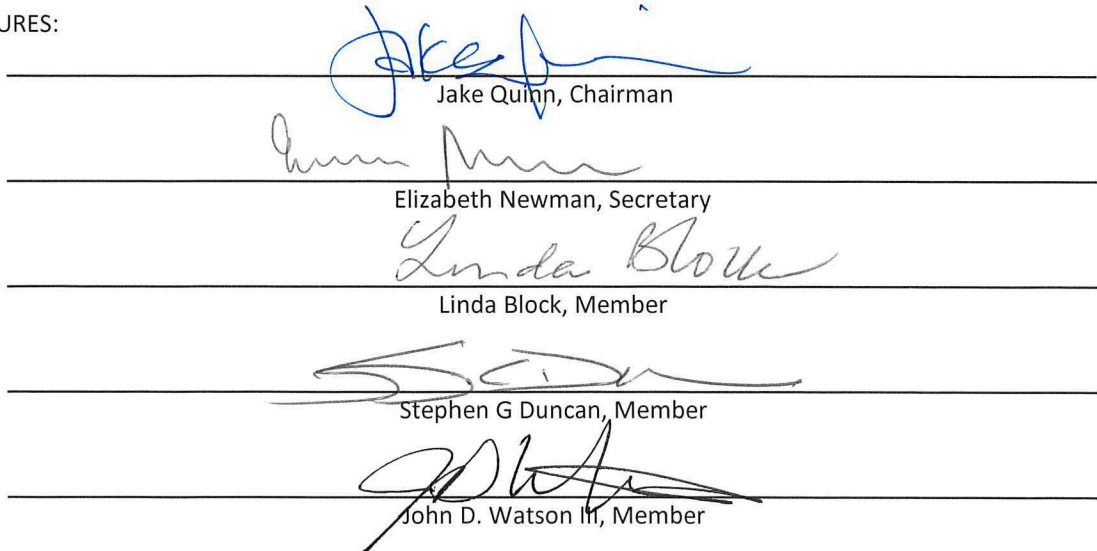 URES:
Jake Quinn
Jake Quinn, Chairman
Elizabeth Newman, Secretary
Linda Block
Linda Block, Member
Stephen G Duncan, Member
John D. Watson III, Member